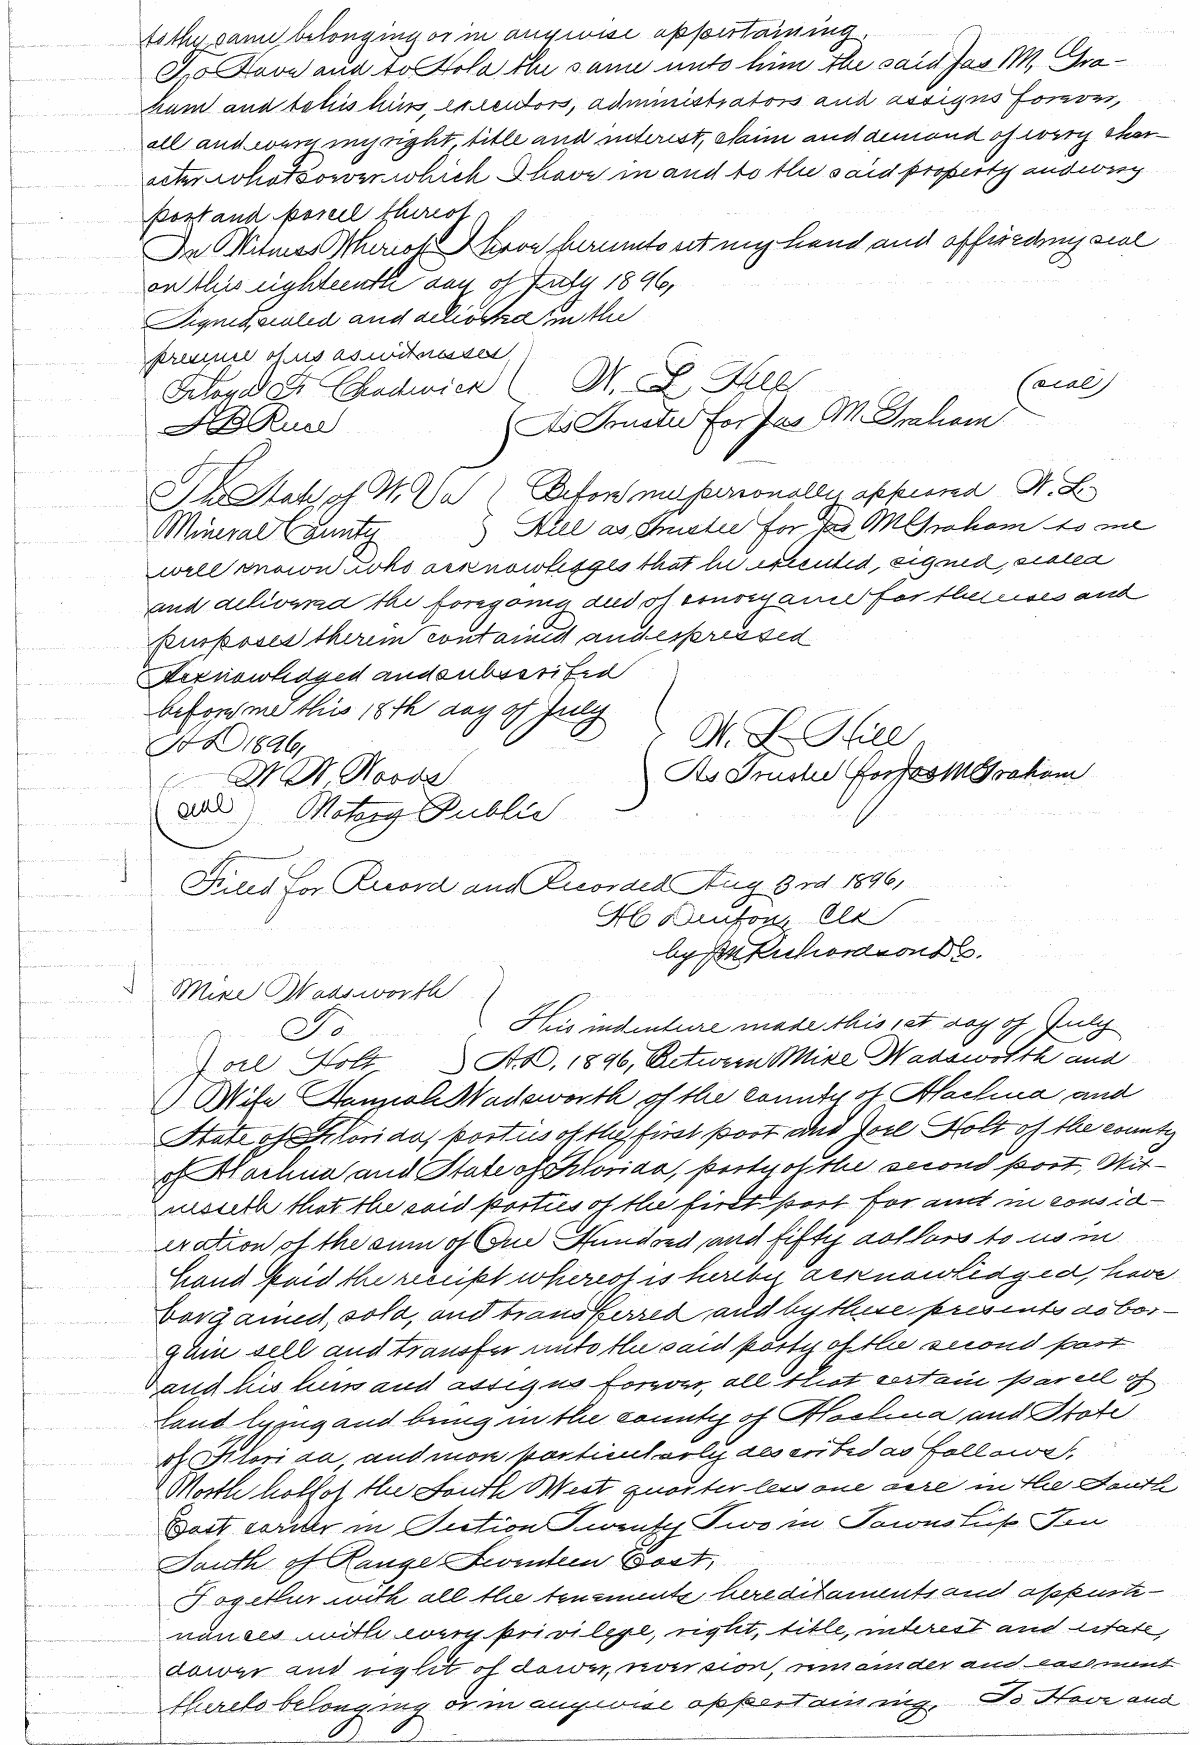 to the same belonging or in anywise appertaining.
To Have and to Hold the same unto him the said Jas M. Gra-
ham and to his heirs, executors, administrators and assigns forever,
all and every my right, title and interest, claim and demand of every char-
acter whatsoever which I have in and to the said property and every
part and parcel thereof
In Witness Whereof I have hereunto set my hand and affixed my seal
on this eighteenth day of July 1896,
Signed, sealed and delivered in the
presence of us as witnesses,
Floyd F. Chadwick W. L. Hill (seal)
As Trustee for Jas M. Graham
The State of W. Va Before me personally appeared W. L.
Mineral County Hill as Trustee for Jas M Graham to me
well known who acknowledges that he executed, signed, sealed
and delivered the foregoing deed of conveyance for the uses and
purposes therein contained and expressed
Acknowledged and subscribed
before me this 18th day of July
A D 1896, W. L. Hill
W. W. Woods As Trustee for Jas M Graham
(seal) Notary Public
Filed for Record and Recorded Aug 3rd 1896,
H C Denton, Clk
by J M Richardson D C.
Mike Wadsworth
To This indenture made this 1st day of July
Joel Holt A.D. 1896, Between Mike Wadsworth and
Wife Hannah Wadsworth of the county of Alachua and
State of Florida, parties of the first part and Joel Holt of the county
of Alachua and State of Florida, party of the second part, Wit-
nesseth that the said parties of the first part for and in consid-
eration of the sum of One Hundred and fifty dollars to us in
hand paid the receipt whereof is hereby acknowledged, have
bargained, sold, and transferred and by these presents do bar-
gain sell and transfer unto the said party of the second part
and his heirs and assigns forever, all that certain parcell of
land lying and being in the county of Alachua and State
of Florida, and more particularly described as follows:
North half of the South West quarter less one acre in the South
East corner in Section Twenty Two in Township Ten
South of Range Seventeen East,
Together with all the tenements hereditaments and apperte-
nances with every privilege, right, title, interest and estate,
dower and right of dower, reversion, remainder and easment
thereto belonging or in anywise appertaining. To Have and